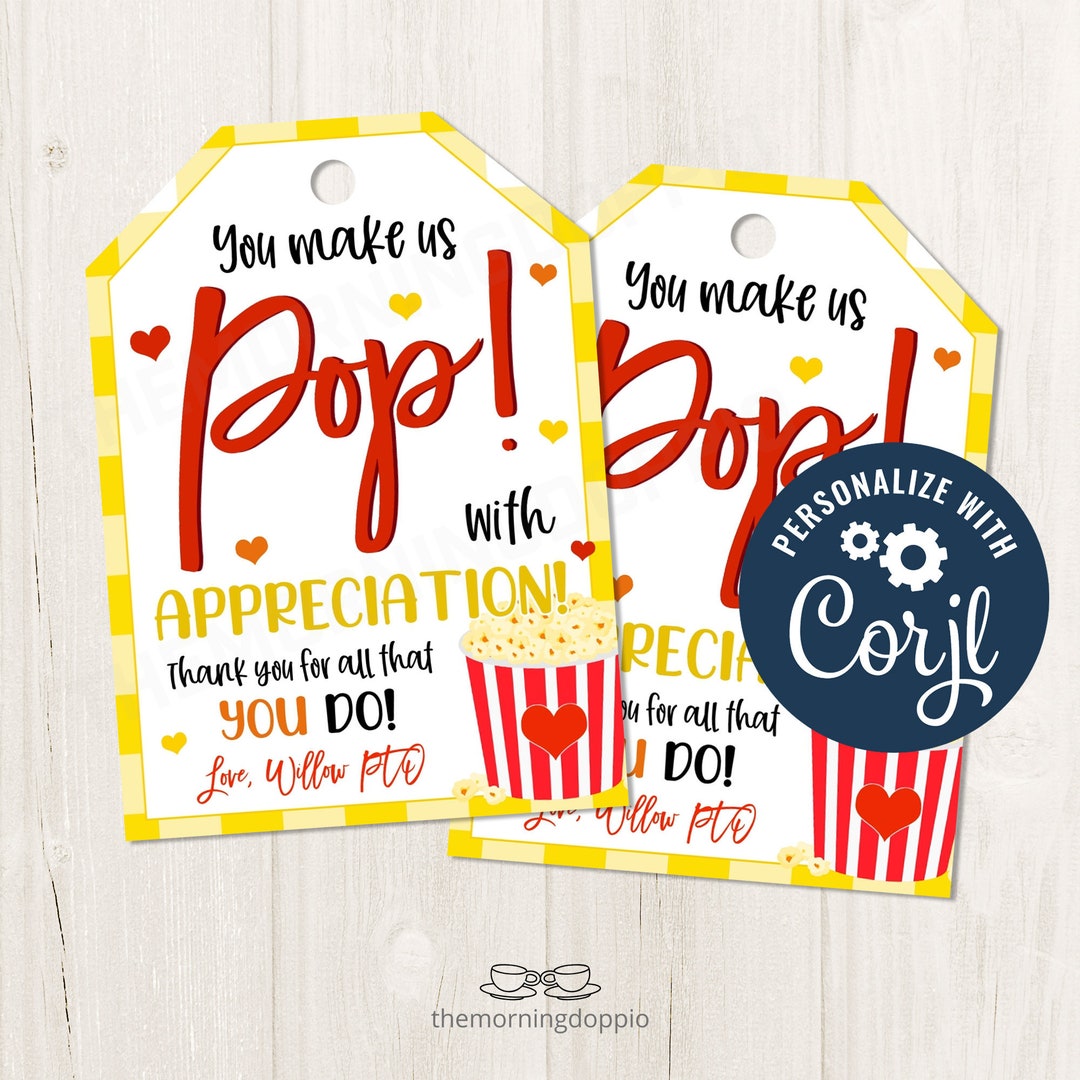 You make us
Pop!
with
APPRECIATION!
Thank you for all that
YOU DO!
Love, Willow PTO
You make us
Pop!
RECIA
ou for all that
U DO!
Love, Willow PTO
PERSONALIZE WITH
Corjl
themorningdoppio